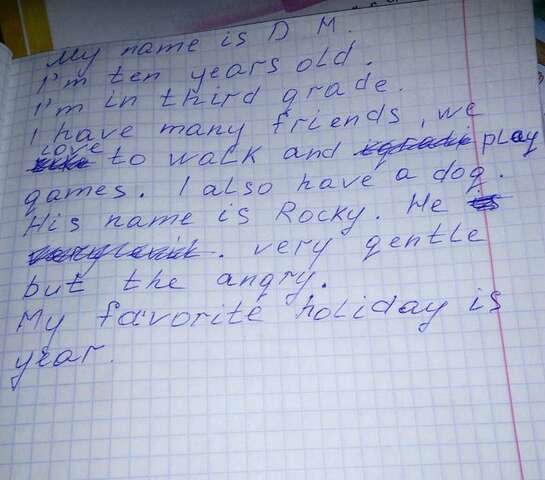 My name is D M.
I'm ten years old.
I'm in third grade.
I have many friends, we
love to walk and play
games. I also have a dog.
His name is Rocky. He
. very gentle
but the angry.
My favorite holiday is
year.